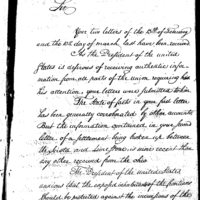 Sir
Your two letters of the 15th of January
and the 10th day of march last have been received
As the President of the united
States is desirous of receiving authentic infor-
mation from all parts of the union requiring
his attention, your letters were submitted to him.
The State of facts in your first letter
has been generally corroborated by other accounts
But the information contained in your second
letter of a settlement being broken up between
and is more recent than
any other received from the ohio
The President of the united States
anxious that the exposed inhabitants of the frontiers
should be protected against the incursions of the